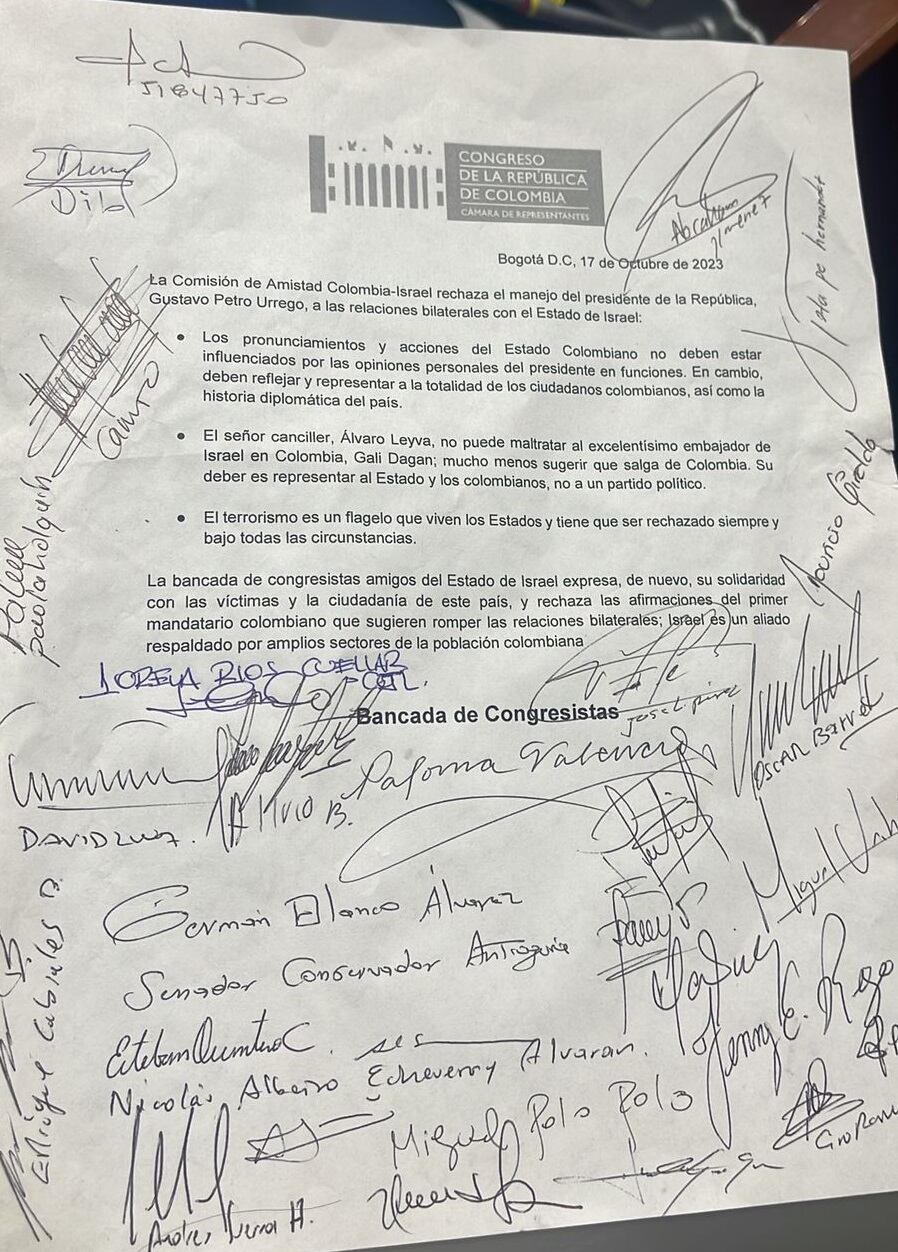 51847750
Dila
CONGRESO
DE LA REPÚBLICA
DE COLOMBIA
CÁMARA DE REPRESENTANTES
Abraham
Jimenez
Bogotá D.C, 17 de Octubre de 2023
La Comisión de Amistad Colombia-Israel rechaza el manejo del presidente de la República,
Gustavo Petro Urrego, a las relaciones bilaterales con el Estado de Israel:
• Los pronunciamientos y acciones del Estado Colombiano no deben estar
influenciados por las opiniones personales del presidente en funciones. En cambio,
deben reflejar y representar a la totalidad de los ciudadanos colombianos, así como la
historia diplomática del país.
• El señor canciller, Álvaro Leyva, no puede maltratar al excelentísimo embajador de
Israel en Colombia, Gali Dagan; mucho menos sugerir que salga de Colombia. Su
deber es representar al Estado y los colombianos, no a un partido político.
• El terrorismo es un flagelo que viven los Estados y tiene que ser rechazado siempre y
bajo todas las circunstancias.
La bancada de congresistas amigos del Estado de Israel expresa, de nuevo, su solidaridad
con las víctimas y la ciudadanía de este país, y rechaza las afirmaciones del primer
mandatario colombiano que sugieren romper las relaciones bilaterales; Israel es un aliado
respaldado por amplios sectores de la población colombiana
hernandez
Mauricio Giraldo
paola holguín
LORENA RIOS CUELLAR
Bancada de Congresistas
OSCAR
DAVID
Paloma Valencia
Germán Blanco Álvarez
Senador Conservador Antioquia
Miguel
Enrique Cabrales B.
Esteban Quintero C.
Nicolás Albeiro Echeverry Alvaran.
Jenny E. Rozo
Miguel Polo Polo
Andres Guerra H.